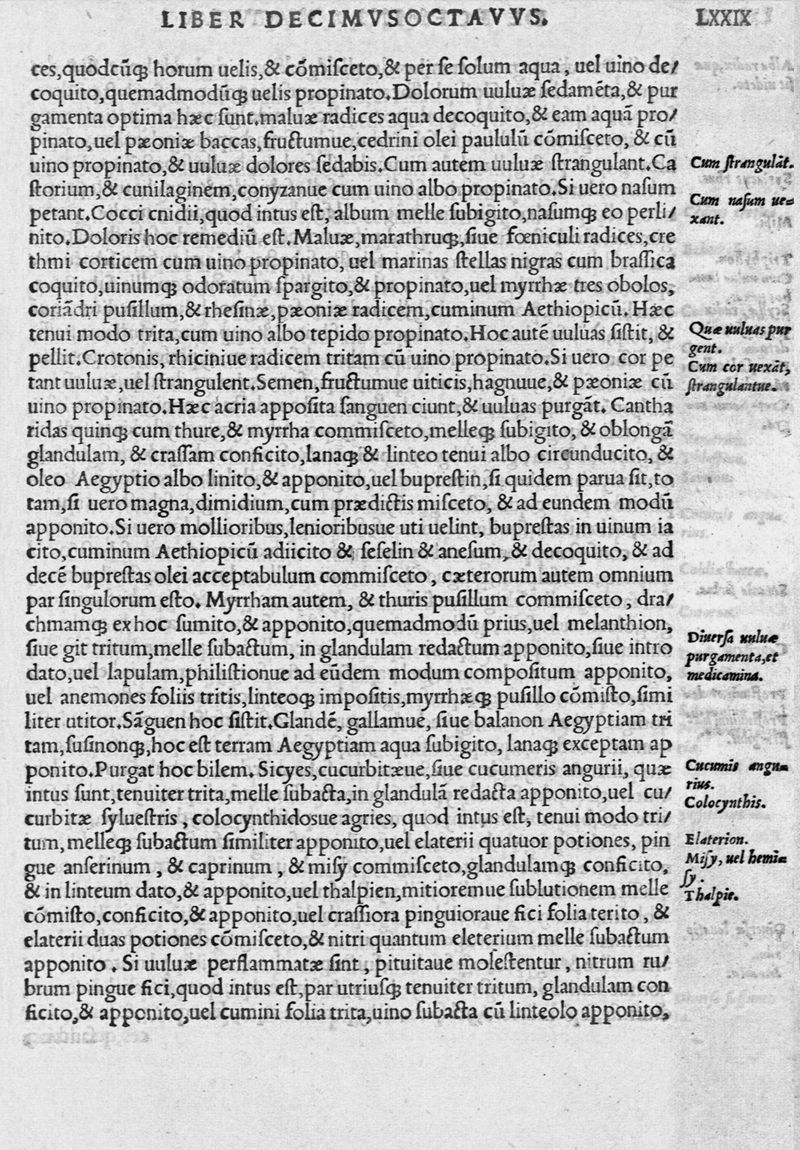 LIBER DECIMVSOCTAVVS. LXXIX
ces,quodcūq; horum uelis,& cōmiſceto,& per ſe ſolum aqua, uel uino de/
coquito,quemadmodūq; uelis propinato.Dolorum uuluæ ſedamēta,& pur
gamenta optima hæc ſunt.maluæ radices aqua decoquito,& eam aquā pro/
pinato,uel pæoniæ baccas,fructumue,cedrini olei paululū cōmiſceto, & cū
uino propinato,& uuluæ dolores ſedabis.Cum autem uuluæ ſtrangulant.Ca
ſtorium,& cunilaginem,conyzanue cum uino albo propinato.Si uero naſum
petant.Cocci cnidii,quod intus eſt, album melle ſubigito,naſumq; eo perli/
nito.Doloris hoc remediū eſt.Maluæ,marathruq;,ſiue fœniculi radices,cre
thmi corticem cum uino propinato, uel marinas ſtellas nigras cum braſſica
coquito,uinumq; odoratum ſpargito,& propinato,uel myrrhæ tres obolos,
coriādri puſillum,& rheſinæ,pæoniæ radicem,cuminum Aethiopicū. Hæc
tenui modo trita,cum uino albo tepido propinato.Hoc autē uuluas ſiſtit, &
pellit.Crotonis,rhiciniue radicem tritam cū uino propinato.Si uero cor pe
tant uuluæ,uel ſtrangulent.Semen,fructumue uiticis,hagnuue,& pæoniæ cū
uino propinato.Hæc acria appoſita ſanguen ciunt,& uuluas purgāt. Cantha
ridas quinq; cum thure,& myrrha commiſceto,melleq; ſubigito, & oblongā
glandulam, & craſſam conficito,lanaq; & linteo tenui albo circunducito, &
oleo Aegyptio albo linito,& apponito,uel bupreſtin,ſi quidem parua ſit,to
tam,ſi uero magna,dimidium,cum prædictis miſceto, & ad eundem modū
apponito.Si uero mollioribus,lenioribusue uti uelint, bupreſtas in uinum ia
cito,cuminum Aethiopicū adiicito & ſeſelin & aneſum,& decoquito, & ad
decē bupreſtas olei acceptabulum commiſceto, cæterorum autem omnium
par ſingulorum eſto. Myrrham autem, & thuris puſillum commiſceto, dra/
chmamq; ex hoc ſumito,& apponito,quemadmodū prius,uel melanthion,
ſiue git tritum,melle ſubactum, in glandulam redactum apponito,ſiue intro
dato,uel lapulam,philiſtionue ad eūdem modum compoſitum apponito,
uel anemones foliis tritis,linteoq; impoſitis,myrrhæq; puſillo cōmiſto,ſimi
liter utitor.Sāguen hoc ſiſtit.Glandē, gallamue, ſiue balanon Aegyptiam tri
tam,ſuſinonq;,hoc eſt terram Aegyptiam aqua ſubigito, lanaq; exceptam ap
ponito.Purgat hoc bilem. Sicyes,cucurbitæue,ſiue cucumeris angurii, quæ
intus ſunt,tenuiter trita,melle ſubacta,in glandulā redacta apponito,uel cu/
curbitæ ſylueſtris, colocynthidosue agries, quod intus eſt, tenui modo tri/
tum,melleq; ſubactum ſimiliter apponito,uel elaterii quatuor potiones, pin
gue anſerinum, & caprinum, & miſy commiſceto,glandulamq; conficito,
& in linteum dato,& apponito,uel thalpien,mitioremue ſublutionem melle
cōmiſto,conficito,& apponito,uel craſſiora pinguioraue fici folia terito, &
elaterii duas potiones cōmiſceto,& nitri quantum eleterium melle ſubactum
apponito. Si uuluæ perflammatæ ſint, pituitaue moleſtentur, nitrum ru/
brum pingue fici,quod intus eſt,par utriuſq; tenuiter tritum, glandulam con
ficito,& apponito,uel cumini folia trita,uino ſubacta cū linteolo apponito,
Cum ſtrangulāt.
Cum naſum ue=
xant.
Quæ uuluas pur
gent.
Cum cor uexāt,
ſtrangulantue.
Diuerſa uuluæ
purgamenta,et
medicamina.
Cucumis angu=
rius.
Colocynthis.
Elaterion.
Miſy, uel hemia
ſy.
Thalpie.